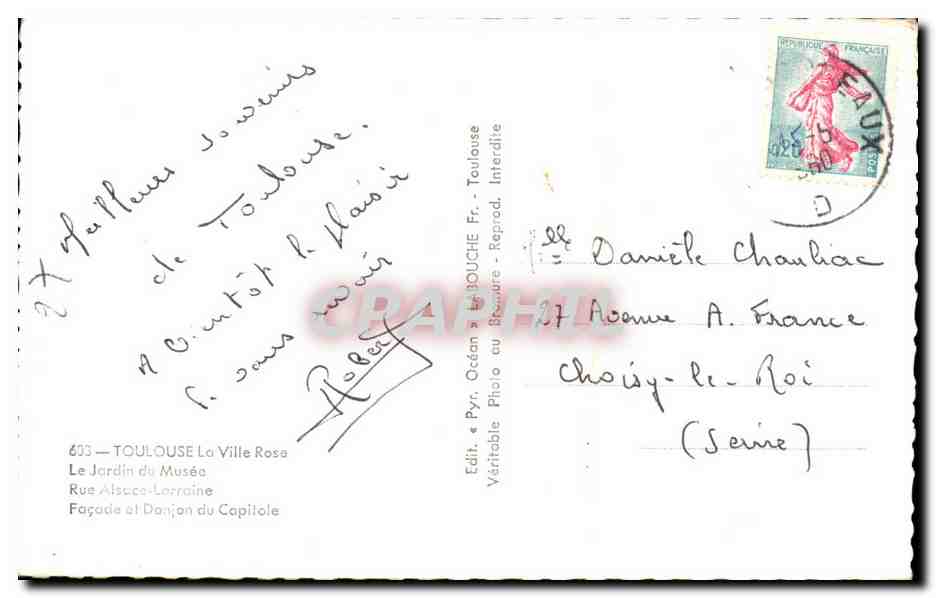 Meilleurs souvenirs
de Toulouse.
A bientôt le plaisir
de vous revoir
Robert
603 — TOULOUSE La Ville Rose
Le Jardin du Musée
Rue Alsace-Lorraine
Façade et Donjon du Capitole
Edit. « Pyr. Océan » LABOUCHE Fr. - Toulouse
Véritable Photo au Bromure - Reprod. Interdite
CPAPHIL
REPUBLIQUE FRANÇAISE
0,20
POSTES
EAUX
Mlle Danièle Chauliac
27 Avenue A. France
Choisy-le-Roi
(Seine)